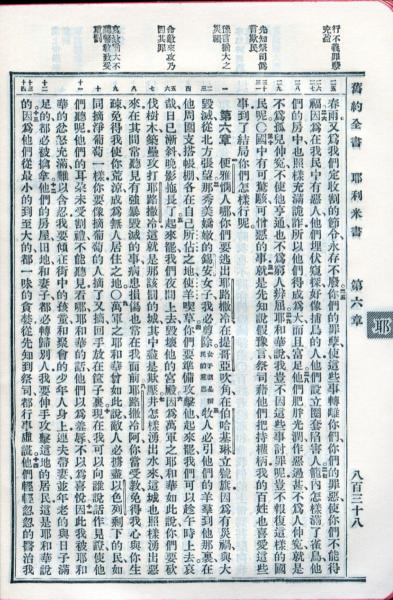 舊約全書 耶利米書 第六章 八百三十八
耶
行不義罪孽
充盈
先知祭司偽
言欺民
預言猶大之
災禍
命敵來攻乃
因其罪
春雨又為我們定收割的節令永存不廢你們的罪孽使這些事轉離你們你們的罪惡使你們不能得
福因為在我民中有惡人他們埋伏窺探好像捕鳥的人他們設立圈套陷害人籠內怎樣滿了雀鳥他
們的房中也照樣充滿詭詐所以他們得成為大而且富足他們肥胖光潤作惡過甚不為人伸冤就是
不為孤兒伸冤不使他亨通也不為窮人辯屈耶和華說我豈不因這些事討罪呢豈不報復這樣的國
民呢〇國中有可驚駭可憎惡的事就是先知說假預言祭司藉他們把持權柄我的百姓也喜愛這些
事到了結局你們怎樣行呢
第六章 便雅憫人哪你們要逃出耶路撒冷在提哥亞吹角在伯哈基琳立號旗因為有災禍與大
毀滅從北方張望那秀美嬌嫩的錫安女子我必剪除 牧人必引他們的羊羣到他那裏在
他周圍支搭帳棚各在自己所佔之地使羊喫草你們要準備攻擊他起來罷我們可以趁午時上去哀
哉日已漸斜晚影拖長了起來罷我們夜間上去毀壞他的宮殿因為萬軍之耶和華如此說你們要砍
伐樹木築壘攻打耶路撒冷這就是那該罰的城其中盡是欺壓井怎樣湧出水來這城也照樣湧出惡
來在其間常聽見有強暴毀滅的事病患損傷也常在我面前耶路撒冷阿你當受教免得我心與你生
疎免得我使你荒涼成為無人居住之地〇萬軍之耶和華曾如此說敵人必擄盡以色列剩下的民如
同摘淨葡萄一樣你要像摘葡萄的人摘了又摘回手放在筐子裏現在我可以向誰說話作見證使他
們聽呢他們的耳朵未受割禮不能聽見看哪耶和華的話他們以為羞辱不以為喜悅因此我被耶和
華的忿怒充滿難以含忍我要傾在街中的孩童和聚會的少年人身上連夫帶妻並年老的與日子滿
足的都必被擒拿他們的房屋田地和妻子都必轉歸別人我要伸手攻擊這地的居民這是耶和華說
的因為他們從最小的到至大的都一味的貪婪從先知到祭司都行事虛謊他們輕輕忽忽的醫治我